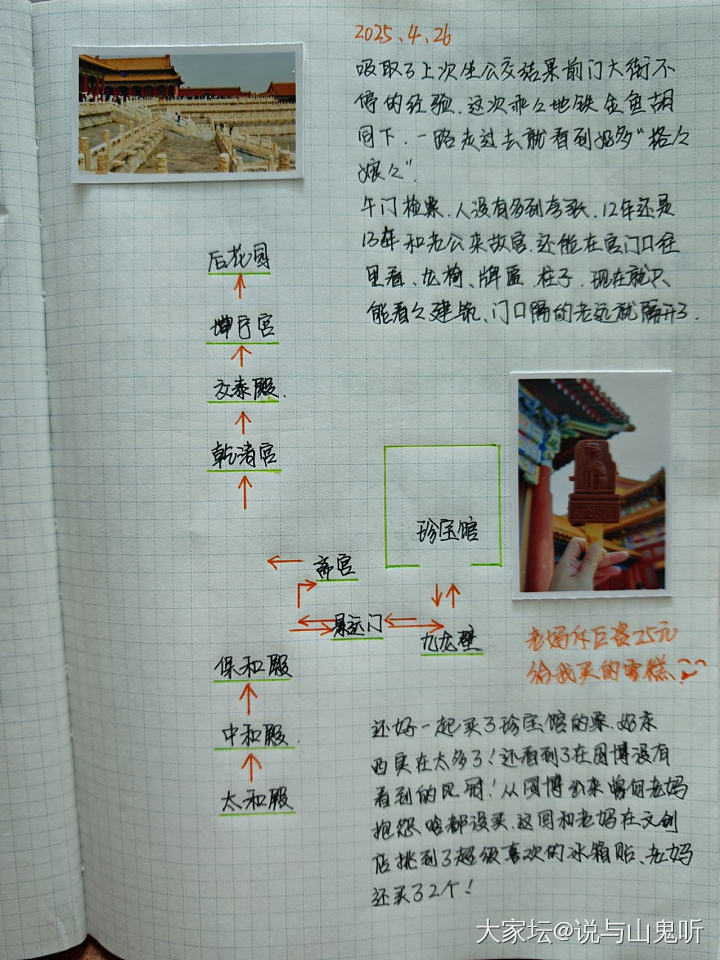 2025.4.26
吸取了上次坐公交结果前门大街不
停的经验.这次乖乖地铁金鱼胡
同下,一路走过去就看到好多"格格
娘娘".
午门检票,人没有多到夸张.12年还是
13年和老公来故宫,还能在宫门口往
里看、龙椅、牌匾、柱子.现在就只
能看看建筑、门口隔的老远就隔开了.
后花园
坤宁宫
交泰殿.
乾清宫
珍宝馆
斋宫
景运门
九龙壁
保和殿
中和殿.
太和殿
老妈斥巨资25元
给我买的雪糕
还好一起买了珍宝馆的票.好东
西实在太多了!还看到了在国博没有
看到的凤冠!从国博出来曾向老妈
抱怨啥都没买.这回和老妈在文创
店挑到了超级喜欢的冰箱贴、老妈
还买了2个!
大家坛@说与山鬼听